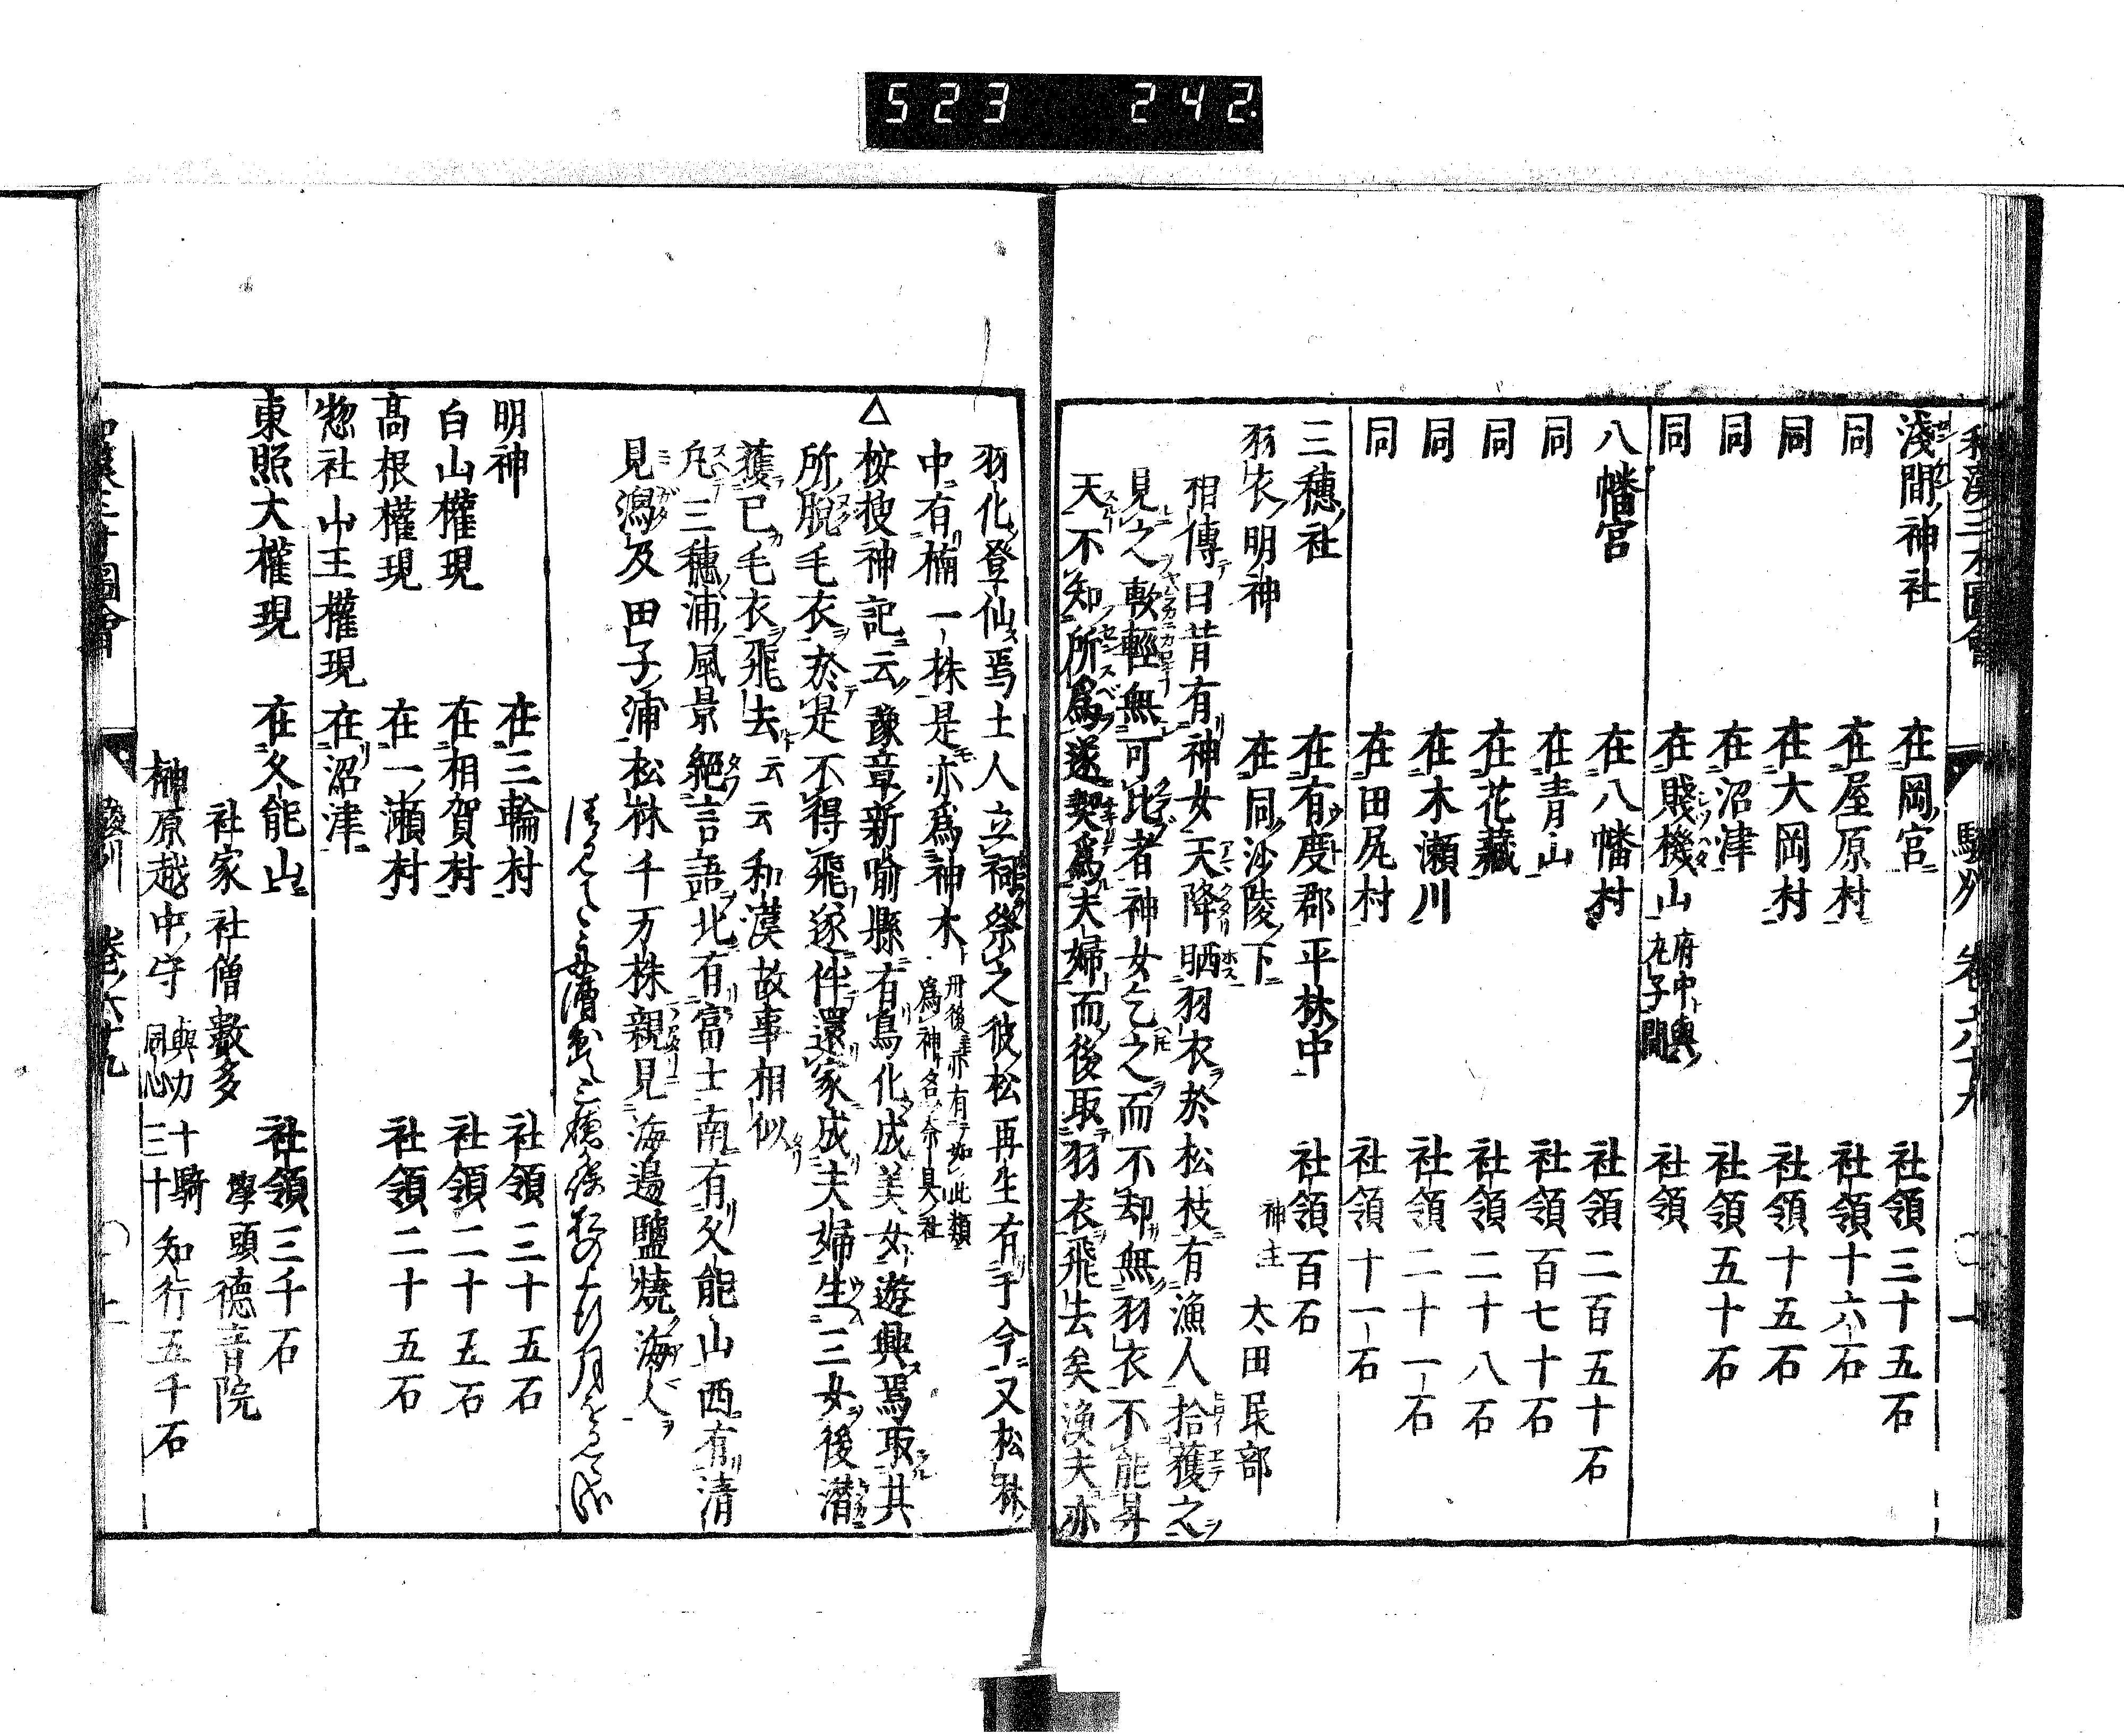 523 242
淺間神社 在岡宮 社領三十五石
同 在屋原村 社領十六石
同 在大岡村 社領十五石
同 在沼津 社領五十石
同 在賤機山 府中與丸子間 社領
八幡宮 在八幡村 社領二百五十石
同 在青山 社領百七十石
同 在花藏 社領二十八石
同 在木瀬川 社領二十一石
同 在田尻村 社領十一石
三穗社 在有慶郡平林中 社領百石
羽衣明神 在同沙陵下 神主 太田民部
相傳曰昔有神女天降晒羽衣於松枝有漁人拾獲之
見之軟輕無可比者神女乞之而不却無羽衣不能昇
天不知所爲遂契爲夫婦而後取羽衣飛去矣漁夫亦
羽化登仙焉土人立祠祭之彼松再生有于今又松林
中有楠一株是亦爲神木 丹後亦有如此類爲神名奈具社
△按搜神記云豫章新喻縣有鳥化成美女遊興焉取其
所脫毛衣於是不得飛遂伴還家成夫婦生三女後潜
獲已毛衣飛去云云和漢故事相似
凡三穗浦風景絕言語北有冨士南有久能山西有清
見潟及田子浦松林千万株親見海邊鹽燒海人
明神 在三輪村 社領三十五石
白山權現 在相賀村 社領二十五石
高根權現 在一瀬村 社領二十五石
惣社山王權現 在沼津
東照大權現 在久能山 社領三千石
社家社僧數多 學頭德音院
榊原越中守 與力十騎 同心三十 知行五千石